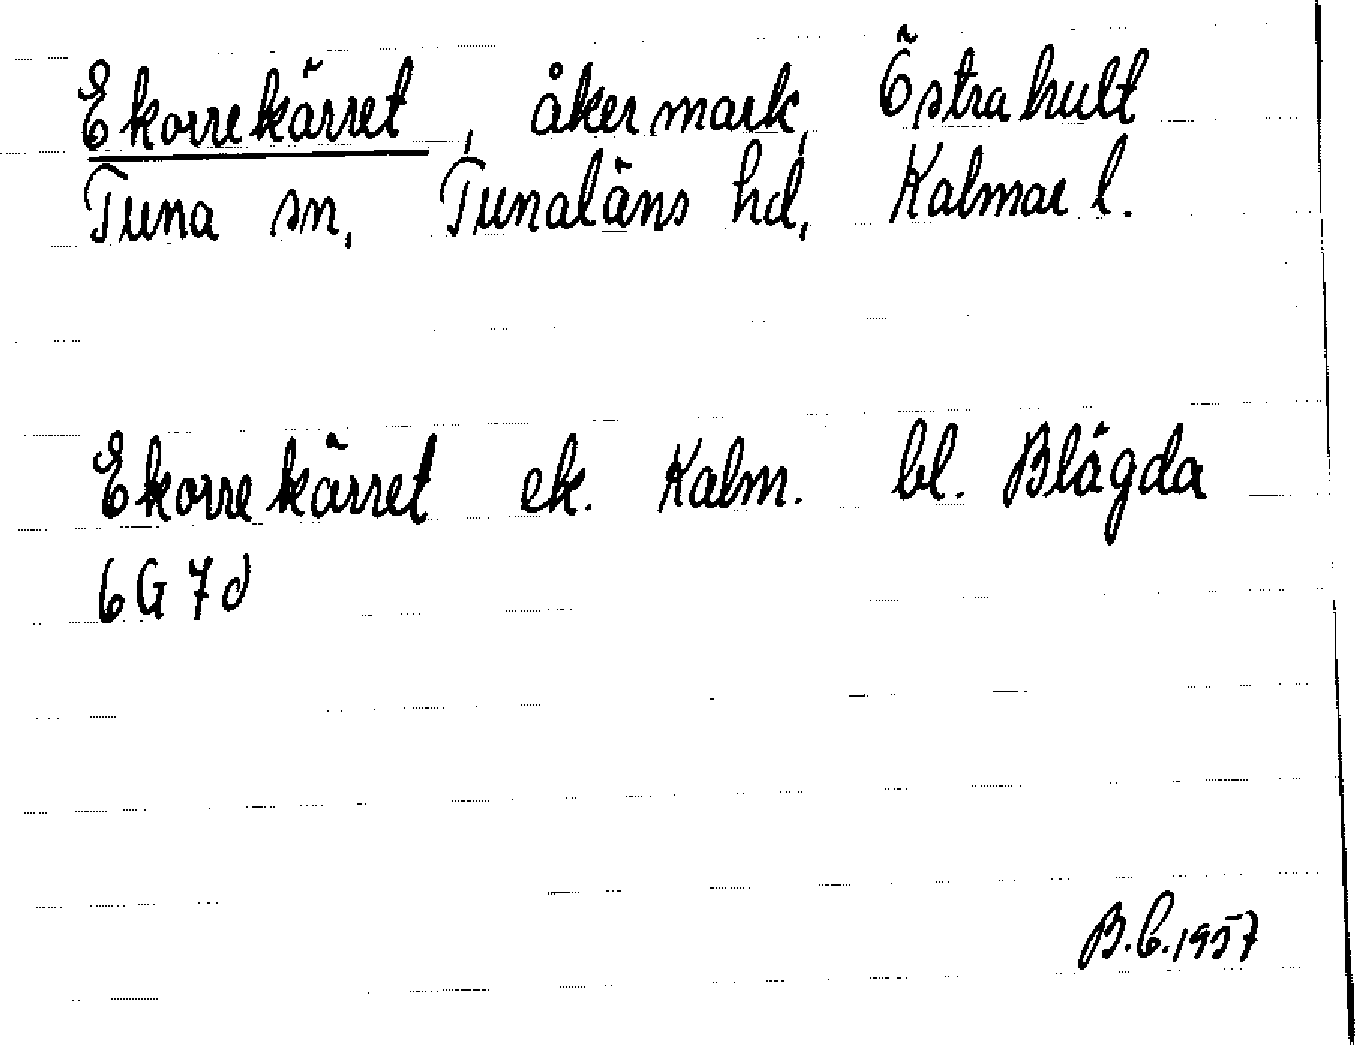 Ekorrekärret, åkermark, Östrahult
Tuna sn, Tunaläns hd, Kalmar l.
Ekorrekärret ek. Kalm. bl. Blägda
6G7d
B.C.1957